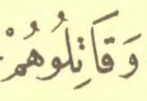 وَقَاتِلُوهُمْ